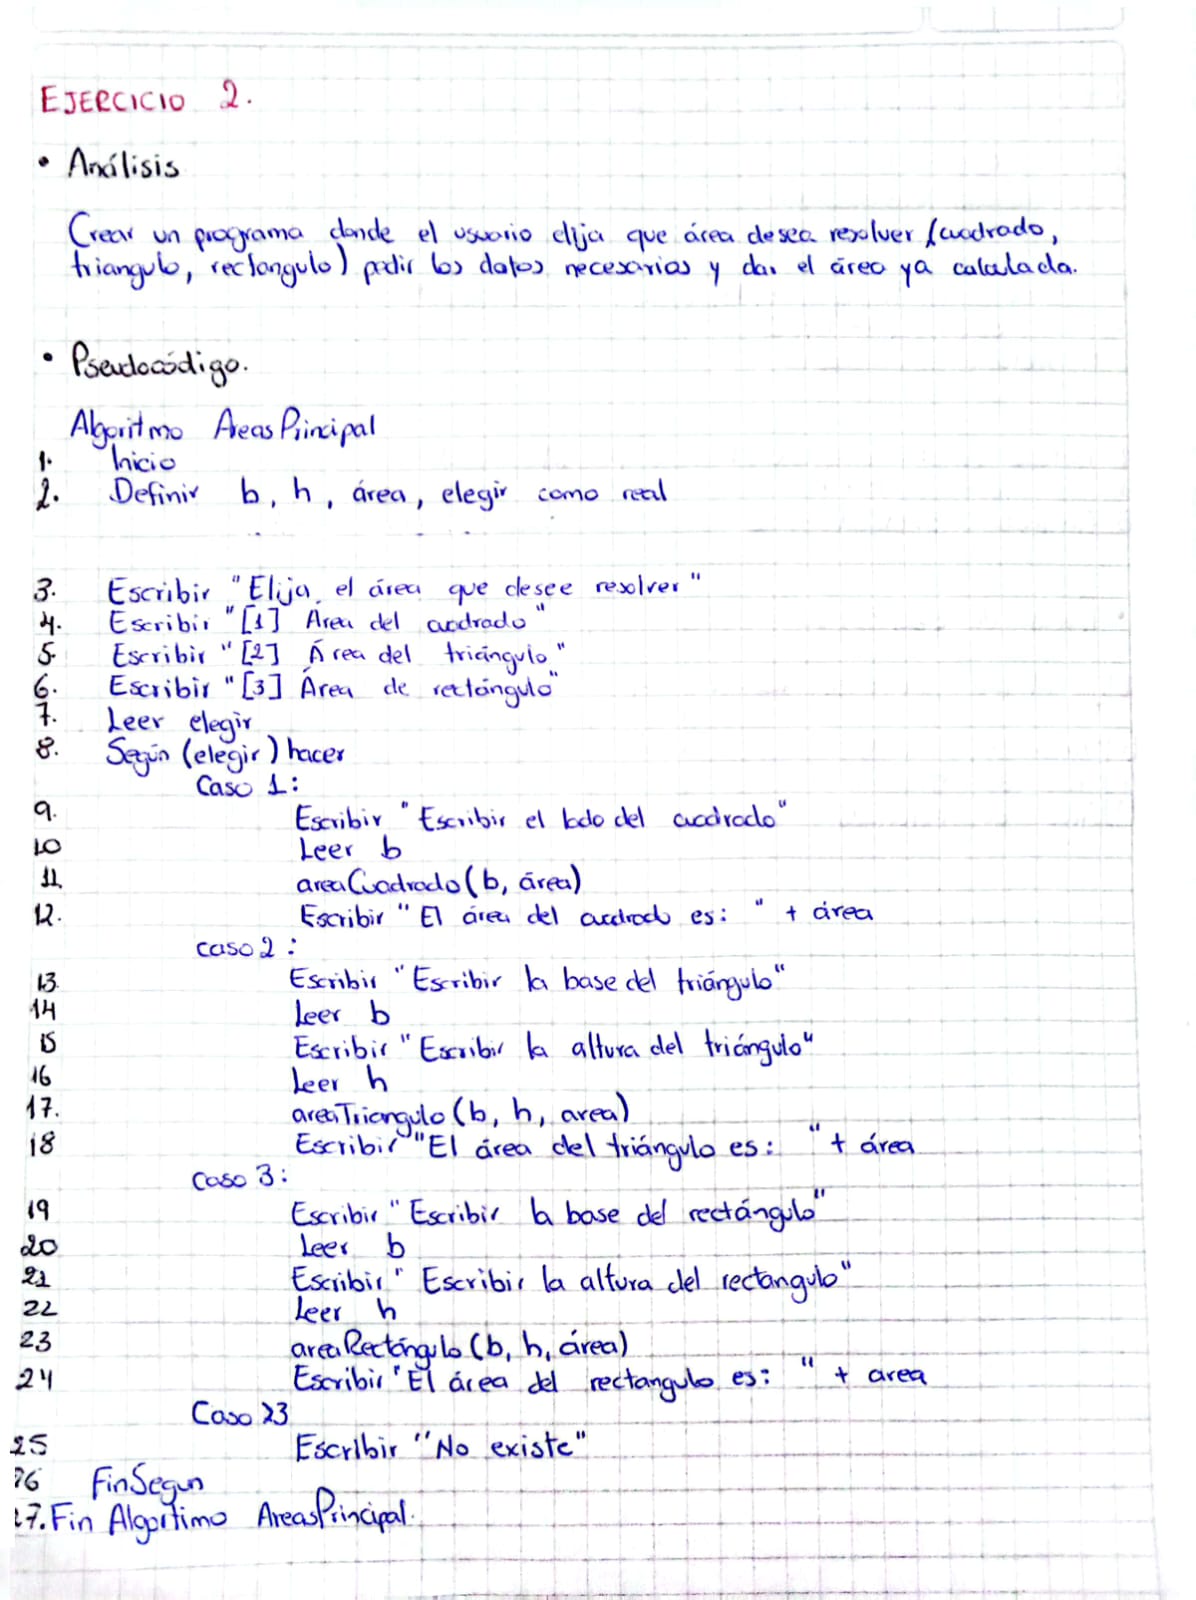 EJERCICIO 2.
• Análisis
Crear un programa donde el usuario elija que área desea resolver (cuadrado,
triangulo, rectangulo) pedir los datos necesarios y dar el área ya calculada.
• Pseudocódigo.
Algoritmo AreasPrincipal
1. Inicio
2. Definir b, h, área, elegir como real
3. Escribir "Elija el área que desee resolver"
4. Escribir "[1] Area del cuadrado"
5. Escribir "[2] Área del triángulo"
6. Escribir "[3] Área de rectángulo"
7. Leer elegir
8. Según (elegir) hacer
Caso 1:
9. Escribir "Escribir el lado del cuadrado"
10 Leer b
11. areaCuadrado(b, área)
12. Escribir "El área del cuadrado es: " + área
caso 2:
13. Escribir "Escribir la base del triángulo"
14 Leer b
15 Escribir "Escribir la altura del triángulo"
16 Leer h
17. areaTriangulo(b, h, area)
18 Escribir "El área del triángulo es: " + área
Caso 3:
19 Escribir "Escribir la base del rectángulo"
20 Leer b
21 Escribir "Escribir la altura del rectangulo"
22 Leer h
23 areaRectángulo(b, h, área)
24 Escribir "El área del rectangulo es: " + area
Caso >3
25 Escribir "No existe"
26 FinSegun
27. Fin Algoritimo AreasPrincipal.